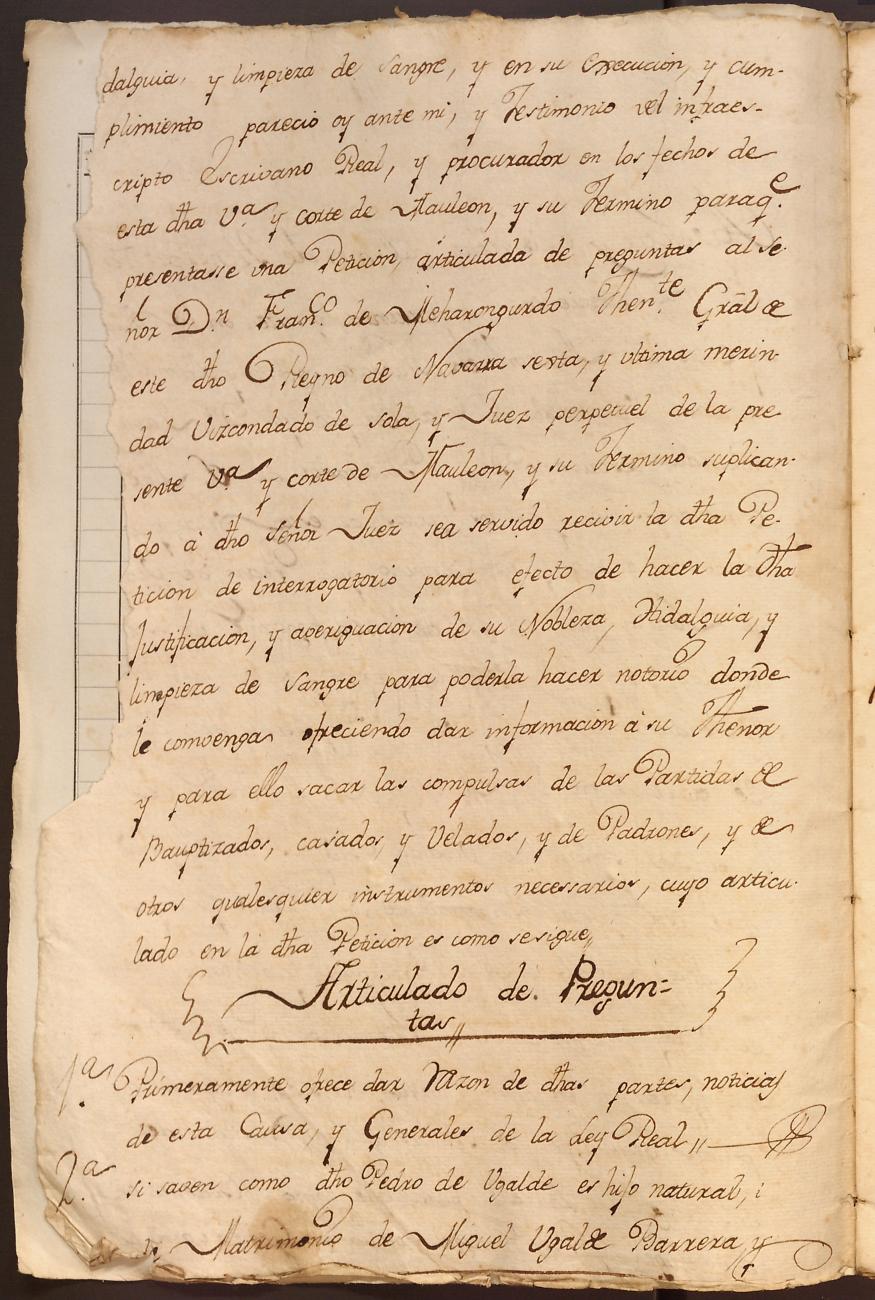 dalguia, y limpieza de sangre, y en su execucion, y cum-
plimiento parecio oy ante mi, y Testimonio del infraes-
cripto Escrivano Real, y procurador en los fechos de
esta dha Vª y corte de Mauleon, y su Termino paraq.e
presentasse una Peticion, articulada de preguntas al Se-
ñor Dn Fran.co de Meharongurdo Then.te Grãl de
este dho Reyno de Navarra sexta, y ultima merin-
dad Vizcondado de sola, y Juez perpetuel de la pre
sente Vª y corte de Mauleon, y su Termino suplican-
do à dho señor Juez sea servido recivir la dha Pe-
ticion de interrogatorio para efecto de hacer la dha
Justificacion, y aoeriguacion de su Nobleza, Hidalguia, y
limpieza de sangre para poderla hacer notorio donde
le comvenga ofreciendo dar informacion à su Thenor
y para ello sacar las compulsas de las Partidas de
Bauptizados, casados, y Velados, y de Padrones, y de
otros qualesquier instrumentos necessarios, cuyo articu-
lado en la dha Peticion es como se sigue,,
Articulado de Pregun=
tas,,
1.ª Primeramente ofrece dar Razon de dhas partes, noticias
de esta Causa, y Generales de la Ley Real,,
2.ª si saven como dho Pedro de Ugalde es hijo natural, i
Matrimonio de Miguel Ugalde Barrera, y